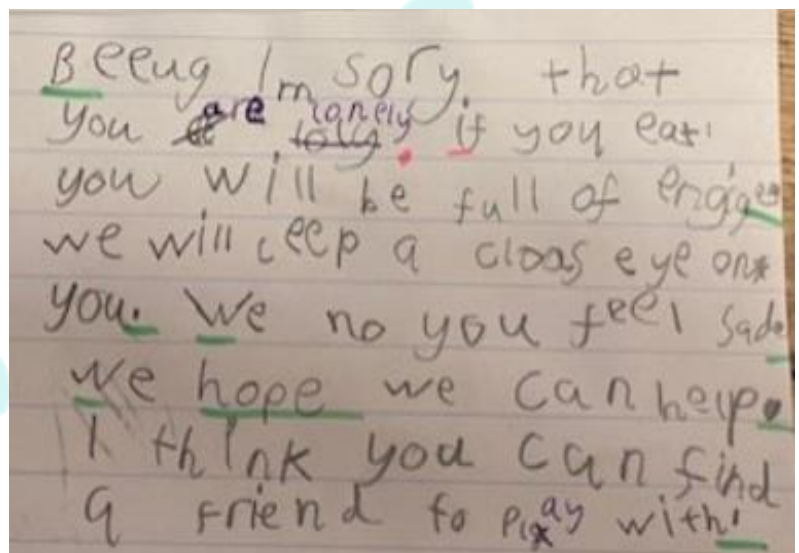 Beeug I'm sory that
you are lonely. if you eat
you will be full of
we will ceep a cloas eye on
you. We no you feel sad.
We hope we can help.
I think you can find
a friend to play with!